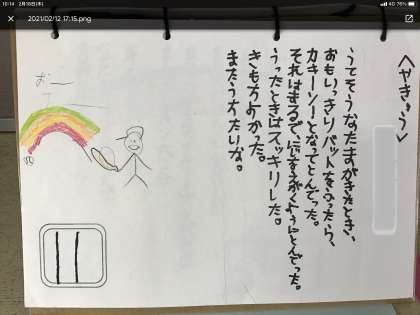 10:14 2月18日(木) 4G 76%
2021/02/12 17:15.png
<やきゅう>
うてそうなたまがきたとき、
おもいっきりバットをふったら、
カキーンーとなってとんでった。
それはまるで、にじをえがくようにとんでった。
うったときはスッキリした。
きもちよかった。
またうちたいな。
おー
11